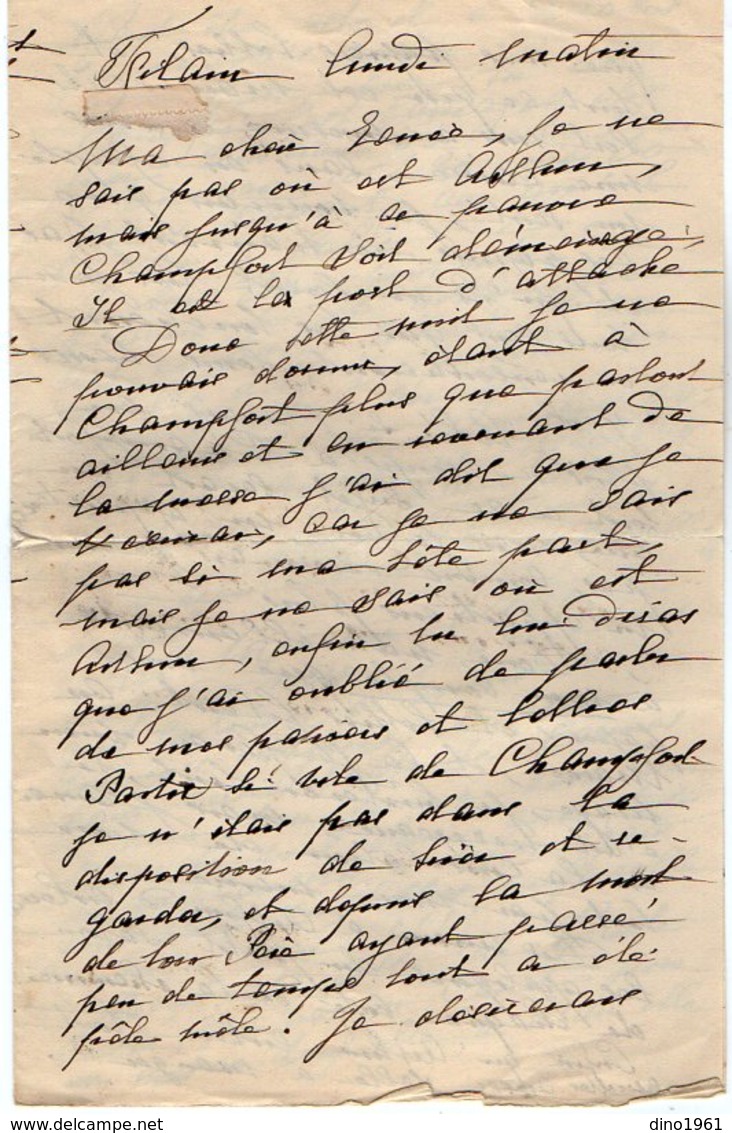 Filain lundi matin
Ma chère Renée, je ne
sais pas où est Arthur,
mais jusqu'à ce pauvre
Champfort soit déménagé,
Il est le port d'attache
Donc cette nuit je ne
pouvais dormir, étant à
Champfort plus que partout
ailleurs et en revenant de
la messe j'ai dit que je
t'écrirai, car je ne sais
pas si ma tête part,
mais je ne sais où est
Arthur, enfin tu lui diras
que j'ai oublié de parler
de mes papiers et lettres
Partie si vite de Champfort
je n'étais pas dans la
disposition de trier et re-
garder, et depuis la mort
de ton Père ayant passé
peu de temps tout a été
pêle mêle. Je désirerais
dino1961